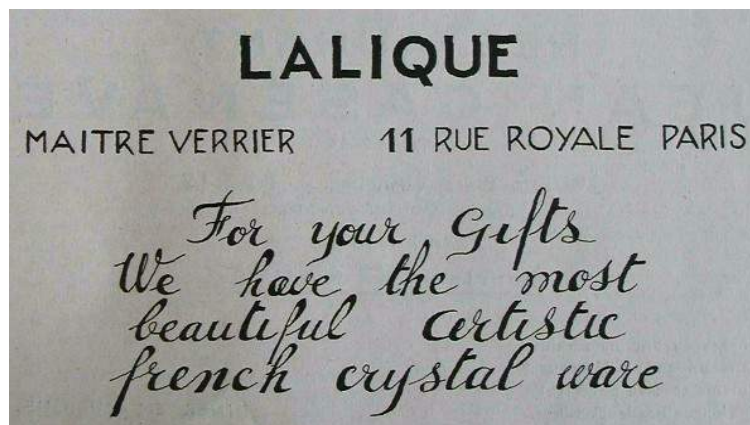 LALIQUE
MAITRE VERRIER 11 RUE ROYALE PARIS
For your Gifts
We have the most
beautiful artistic
french crystal ware